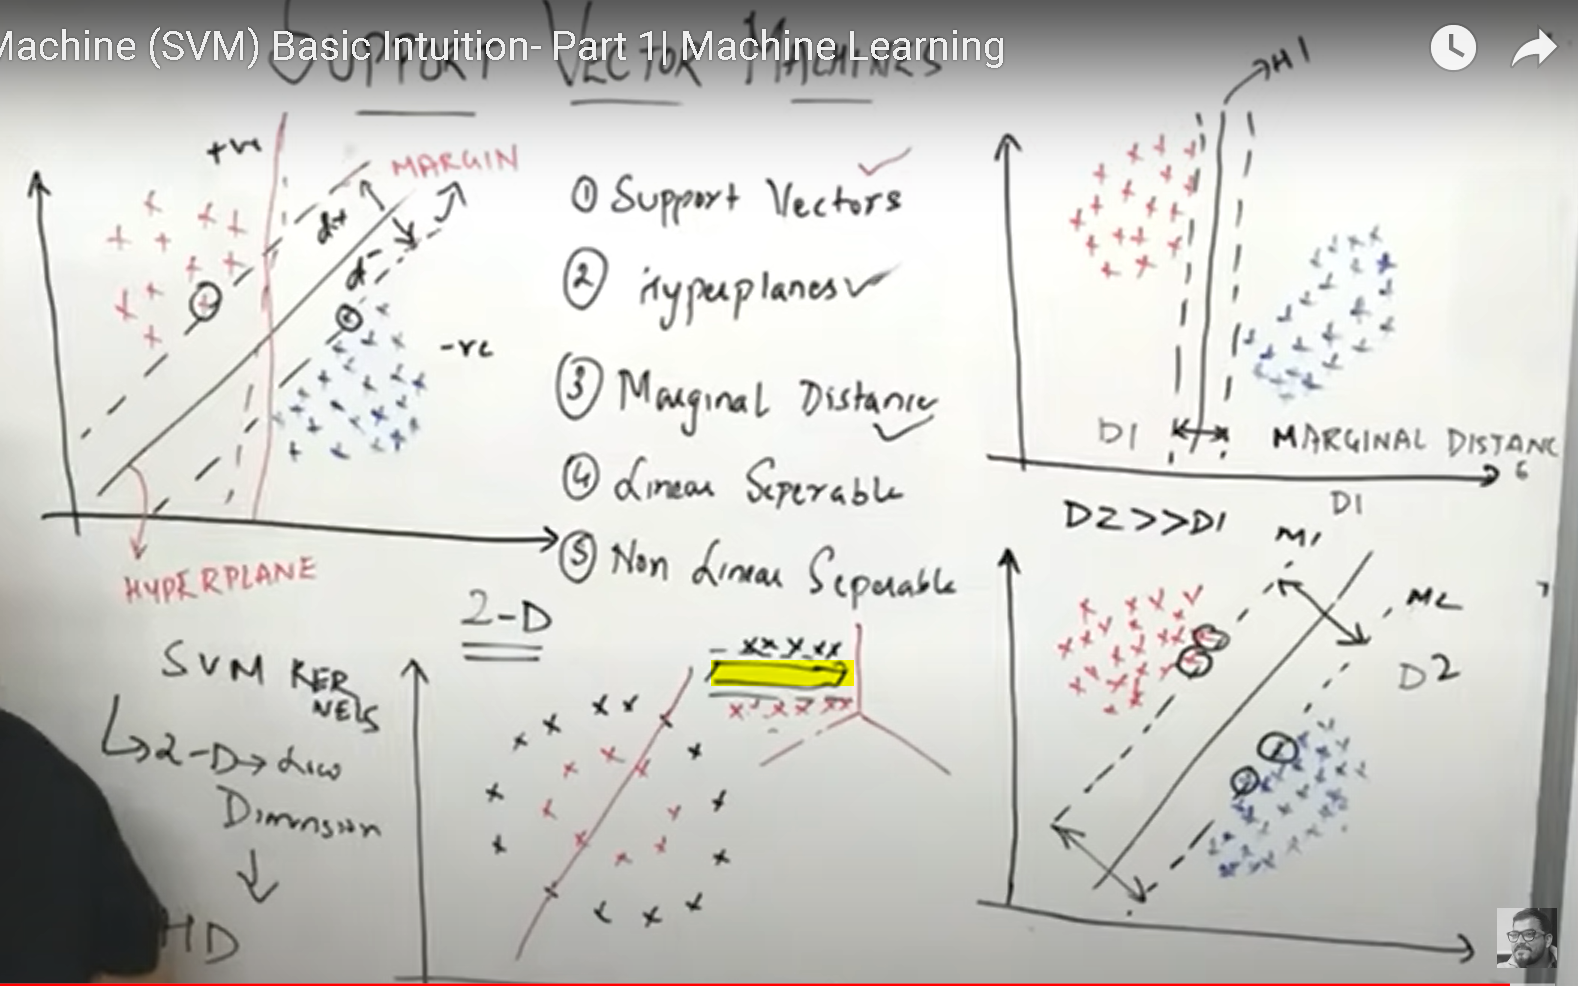 Machine (SVM) Basic Intuition- Part 1| Machine Learning
SUPPORT VECTOR MACHINES
+ve
MARGIN
d+
d-
-ve
HYPERPLANE
① Support Vectors
② Hyperplanes
③ Marginal Distance
④ Linear Seperable
⑤ Non Linear Seperable
H1
D1
MARGINAL DISTANCE
D1
D2>>D1
M1
M2
D2
2-D
SVM KER
NELS
2-D→Low
Dimension
HD